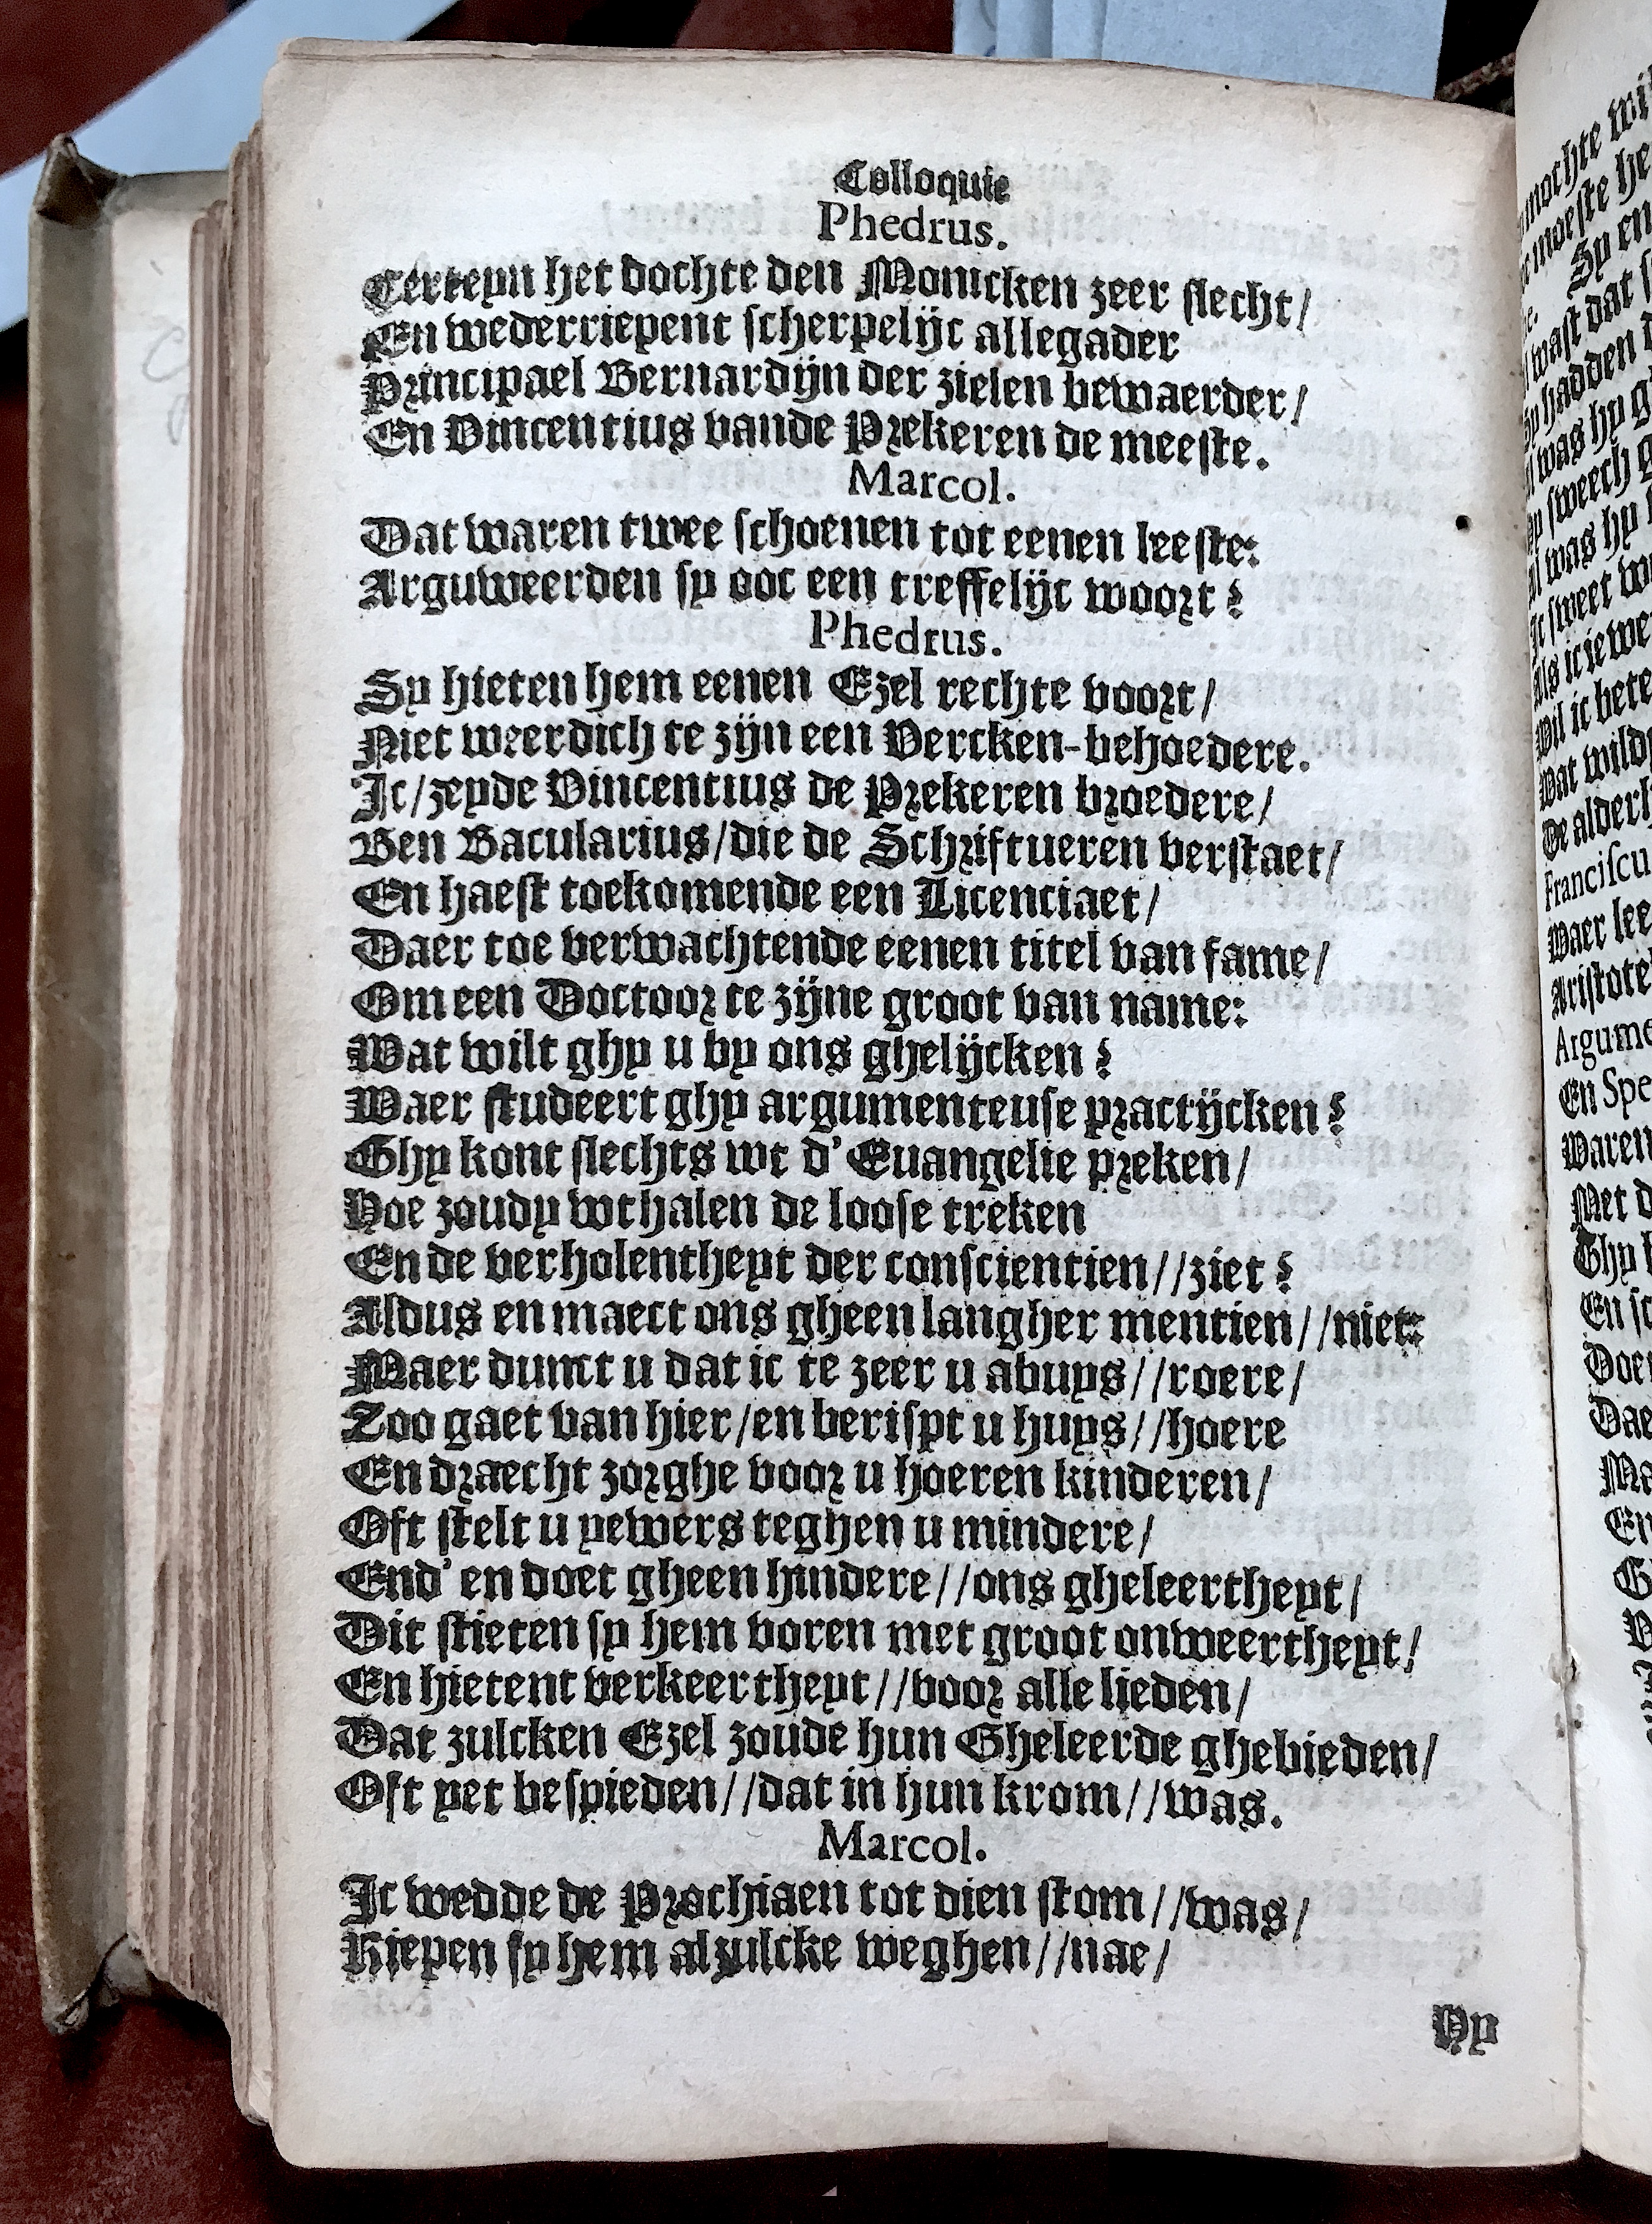 Colloquie
Phedrus.
Certeyn het dochte den Monicken zeer slecht/
En wederriepent scherpelijc allegader
Principael Bernardijn der zielen bewaerder/
En Vincentius vande Prekeren de meeste.
Marcol.
Dat waren twee schoenen tot eenen leeste:
Arguweerden sy ooc een treffelijc woort?
Phedrus.
Sy hieten hem eenen Ezel rechte voort/
Niet weerdich te zijn een Vercken-behoedere.
Ic/zeyde Vincentius de Prekeren broedere/
Ben Bacularius/die de Schriftueren verstaet/
En haest toekomende een Licenciaet/
Daer toe verwachtende eenen titel van fame/
Om een Doctoor te zijne groot van name:
Wat wilt ghy u by ons ghelijcken?
Waer studeert ghy argumenteuse practijcken?
Ghy kont slechts wt d'Euangelie preken/
Hoe zoudy wthalen de loose treken
En de verholentheyt der conscientien//ziet?
Aldus en maect ons gheen langher mentien//niet:
Maer dunct u dat ic te zeer u abuys//roere/
Zoo gaet van hier/en berispt u huys//hoere
En draecht zorghe voor u hoeren kinderen/
Oft stelt u yewers teghen u mindere/
End' en doet gheen hindere//ons gheleertheyt/
Dit stieten sy hem voren met groot onweertheyt/
En hietent verkeertheyt//voor alle lieden/
Dat zulcken Ezel zoude hun Gheleerde ghebieden/
Oft yet bespieden//dat in hun krom//was.
Marcol.
Ic wedde de Prochiaen tot dien stom//was/
Riepen sy hem alzulcke weghen//nae/
Hy